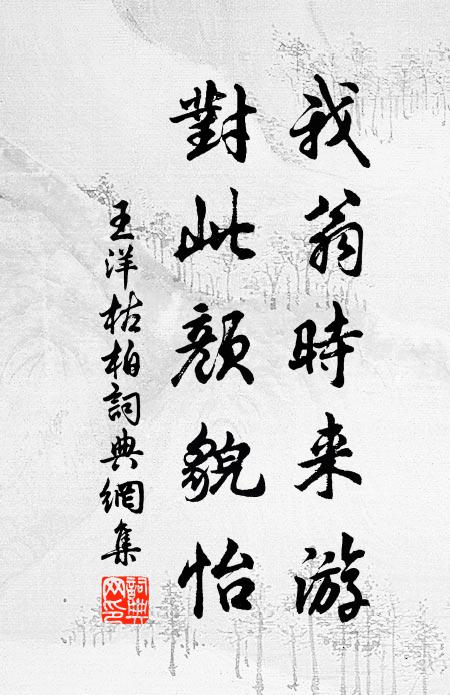 我翁時来游
對此顏貌怡
王洋枯柏詞典網集